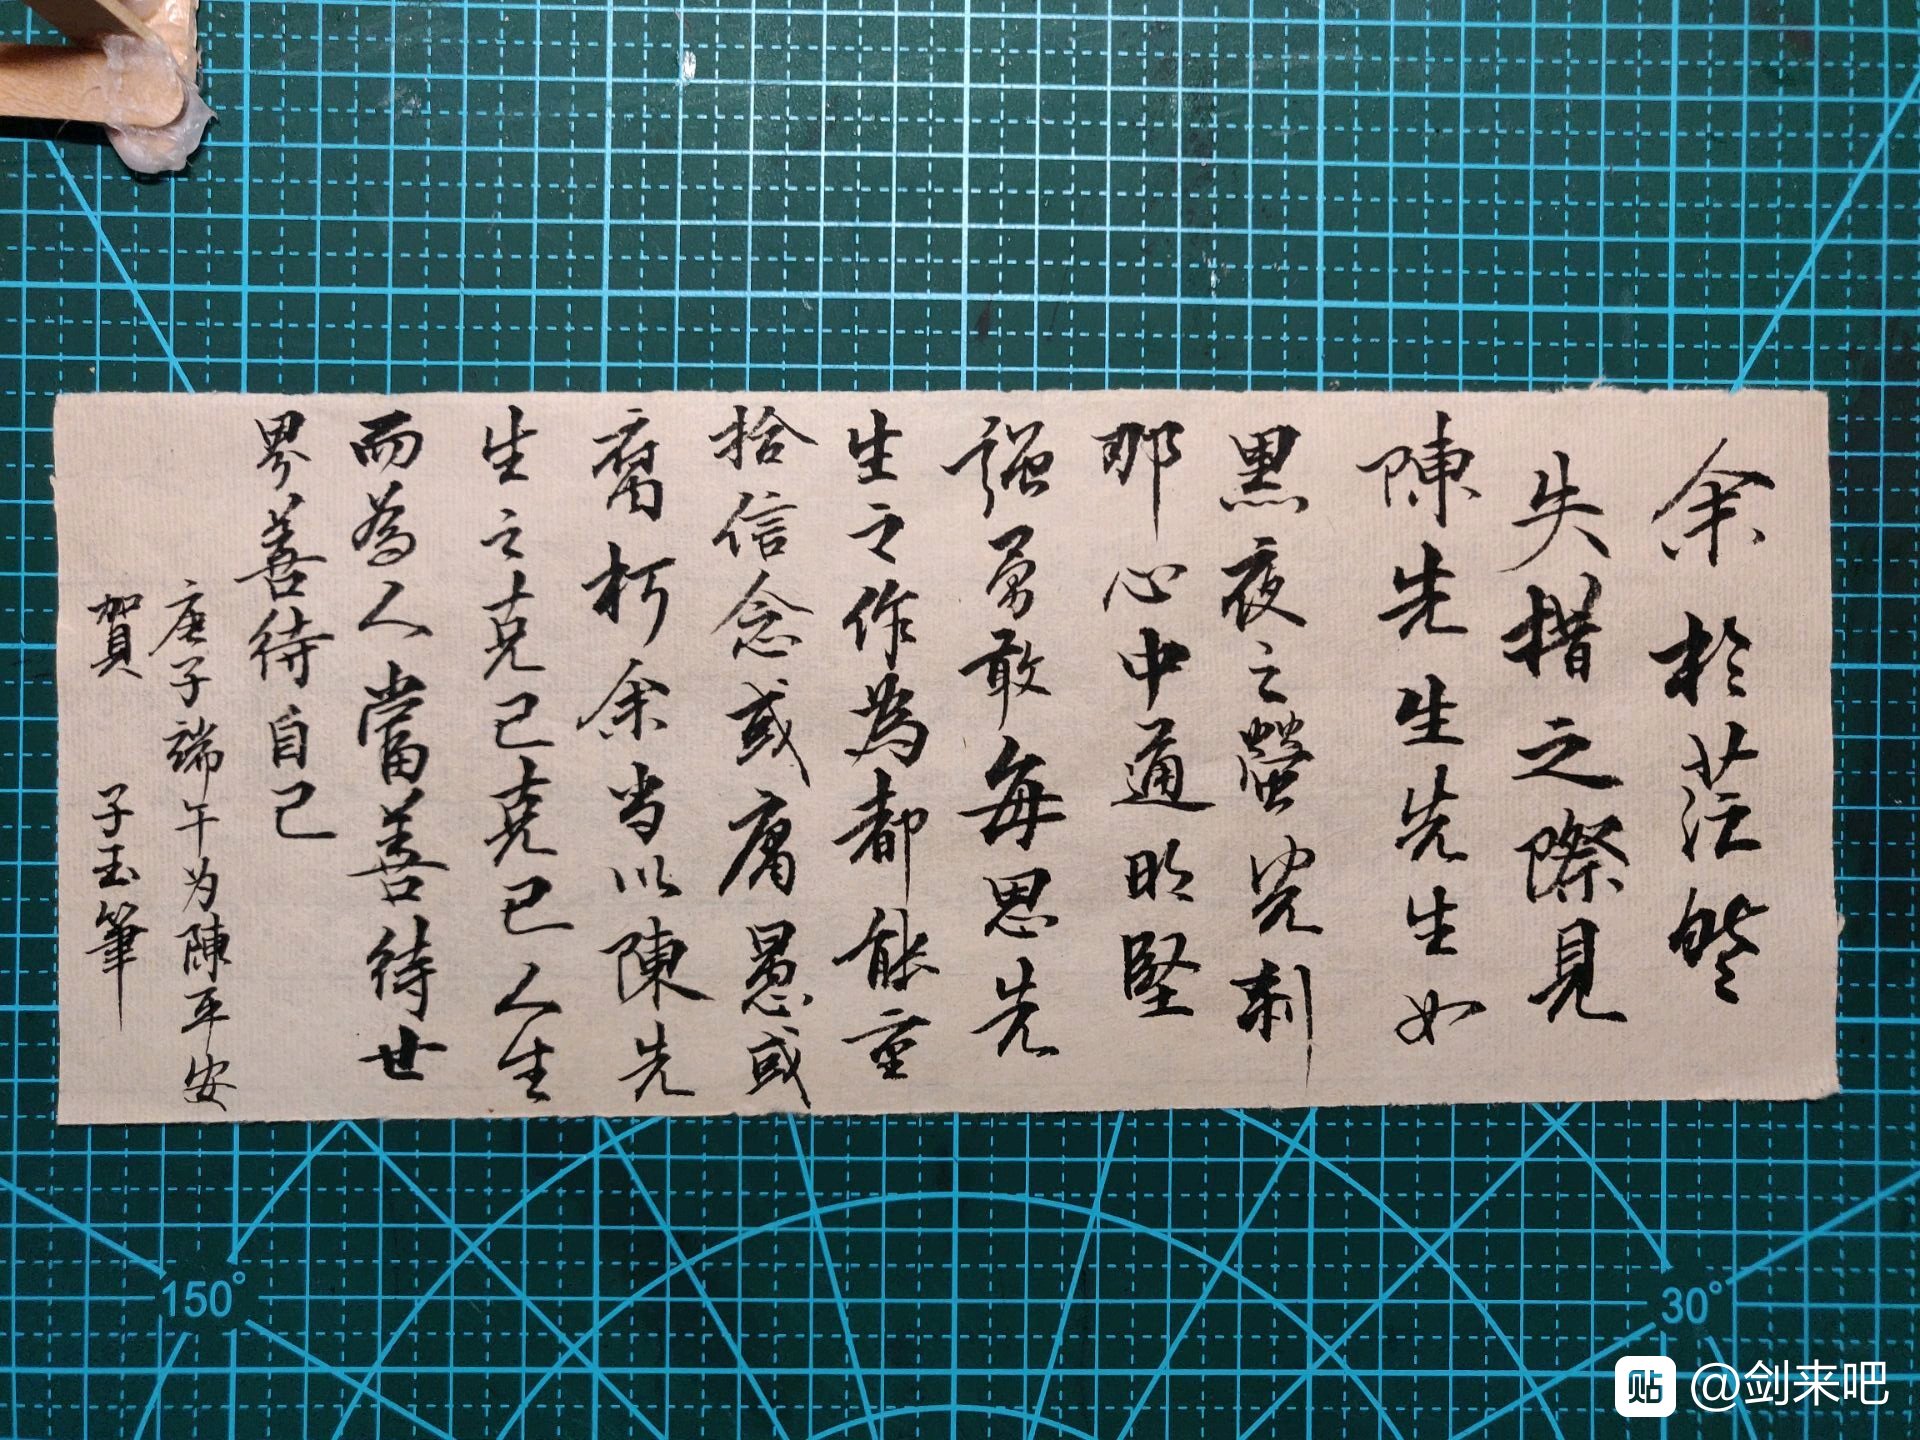 余於茫然
失措之際見
陳先生先生如
黑夜之螢光刹
那心中通明堅
強勇敢每思先
生之作為都能重
拾信念或庸愚或
腐朽余当以陳先
生之克己克己人生
而為人當善待世
界善待自己
庚子端午为陳平安
賀 子玉筆
150°
30°
贴 @剑来吧